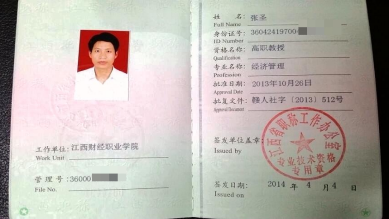 工作单位: 江西财经职业学院
Work Unit
管理号: 36000
File No.
姓 名: 张圣
Full Name
身份证号: 36042419700
ID Number
资格名称: 高职教授
Qualification
专业名称: 经济管理
Profession
批准日期: 2013年10月26日
Approval Date
批复文件: 赣人社字〔2013〕512号
Approval Document
签发单位盖章:
Issued by
江西省职称工作办公室
专业技术资格
专用章
签发日期: 2014 年 4 月 4 日
Issued on